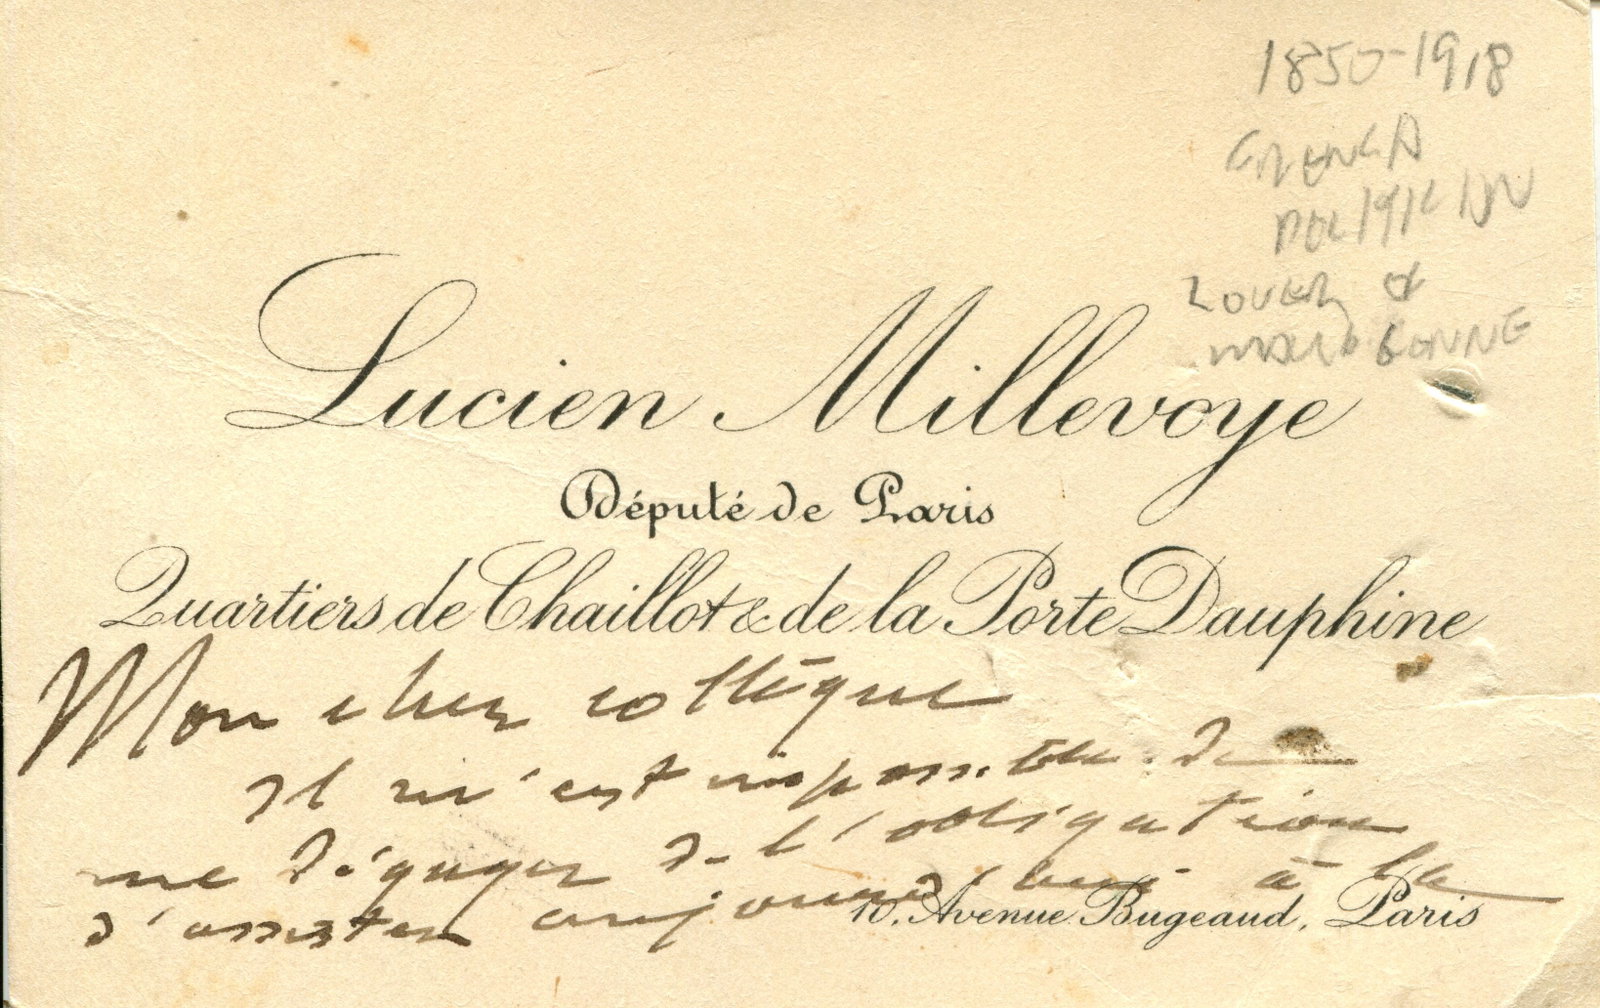 1850-1918
FRENCH
POLITICIAN
LOVER of
MAUD GONNE
Lucien Millevoye
Député de Paris
Quartiers de Chaillot & de la Porte Dauphine
Mon cher collègue
Il m'est impossible de
me dégager de l'obligation
d'assister aujourd'hui à la
10, Avenue Bugeaud, Paris